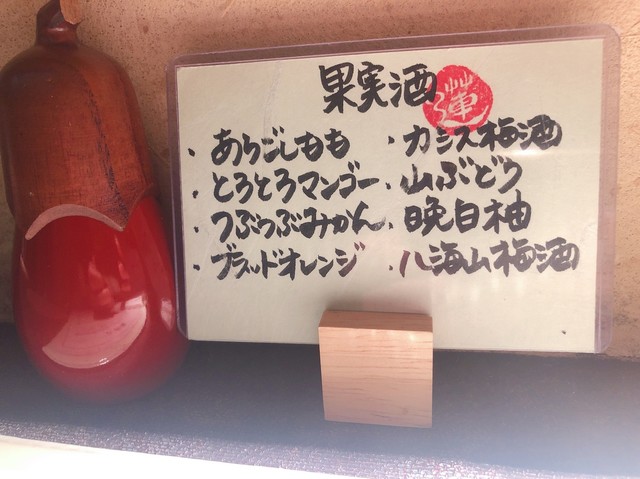 果実酒
蓮
・あらごしもも
・とろとろマンゴー
・つぶつぶみかん
・ブラッドオレンジ
・カシス梅酒
・山ぶどう
・晩白柚
・八海山梅酒